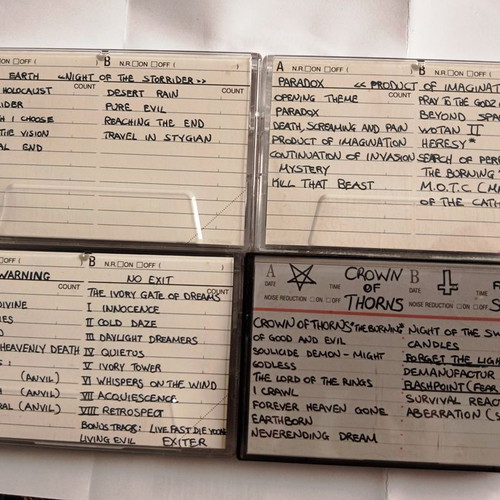 B N.R.□ON □OFF ( )
EARTH <<NIGHT OF THE STORRIDER>>
COUNT COUNT
HOLOCAUST DESERT RAIN
IDER PURE EVIL
H I CHOOSE REACHING THE END
THE VISION TRAVEL IN STYGIAN
AL END
A N.R.□ON □OFF ( ) B N.R.□ON □OFF (
PARADOX << PRODUCT OF IMAGINAT
OPENING THEME COUNT PRAY TO THE GODZ
PARADOX BEYOND SPA
DEATH, SCREAMING AND PAIN WOTAN II
PRODUCT OF IMAGINATION HERESY*
CONTINUATION OF INVASION SEARCH OF PERF
MYSTERY THE BURNING
KILL THAT BEAST M.O.T.C (M
OF THE CATH
□OFF ( ) B N.R.□ON □OFF ( )
WARNING NO EXIT
COUNT COUNT
THE IVORY GATE OF DREAMS
DIVINE I INNOCENCE
IES II COLD DAZE
III DAYLIGHT DREAMERS
HEAVENLY DEATH IV QUIETUS
V IVORY TOWER
(ANVIL) VI WHISPERS ON THE WIND
(ANVIL) VII ACQUIESCENCE
RAL (ANVIL) VIII RETROSPECT
BONUS TRACK: LIVE FAST DIE YOUNG
LIVING EVIL EXITER
A CROWN B
DATE TIME OF DATE TIME
NOISE REDUCTION □ON □OFF THORNS NOISE REDUCTION □ON □OFF
CROWN OF THORNS "THE BURNING" NIGHT OF THE SW
OF GOOD AND EVIL CANDLES
SOULICIDE DEMON-MIGHT FORGET THE LIGH
GODLESS DEMANUFACTUR
THE LORD OF THE RINGS FLASHPOINT (FEAR
I CRAWL SURVIVAL REAC
FOREVER HEAVEN GONE ABERRATION (S
EARTHBORN
NEVERENDING DREAM